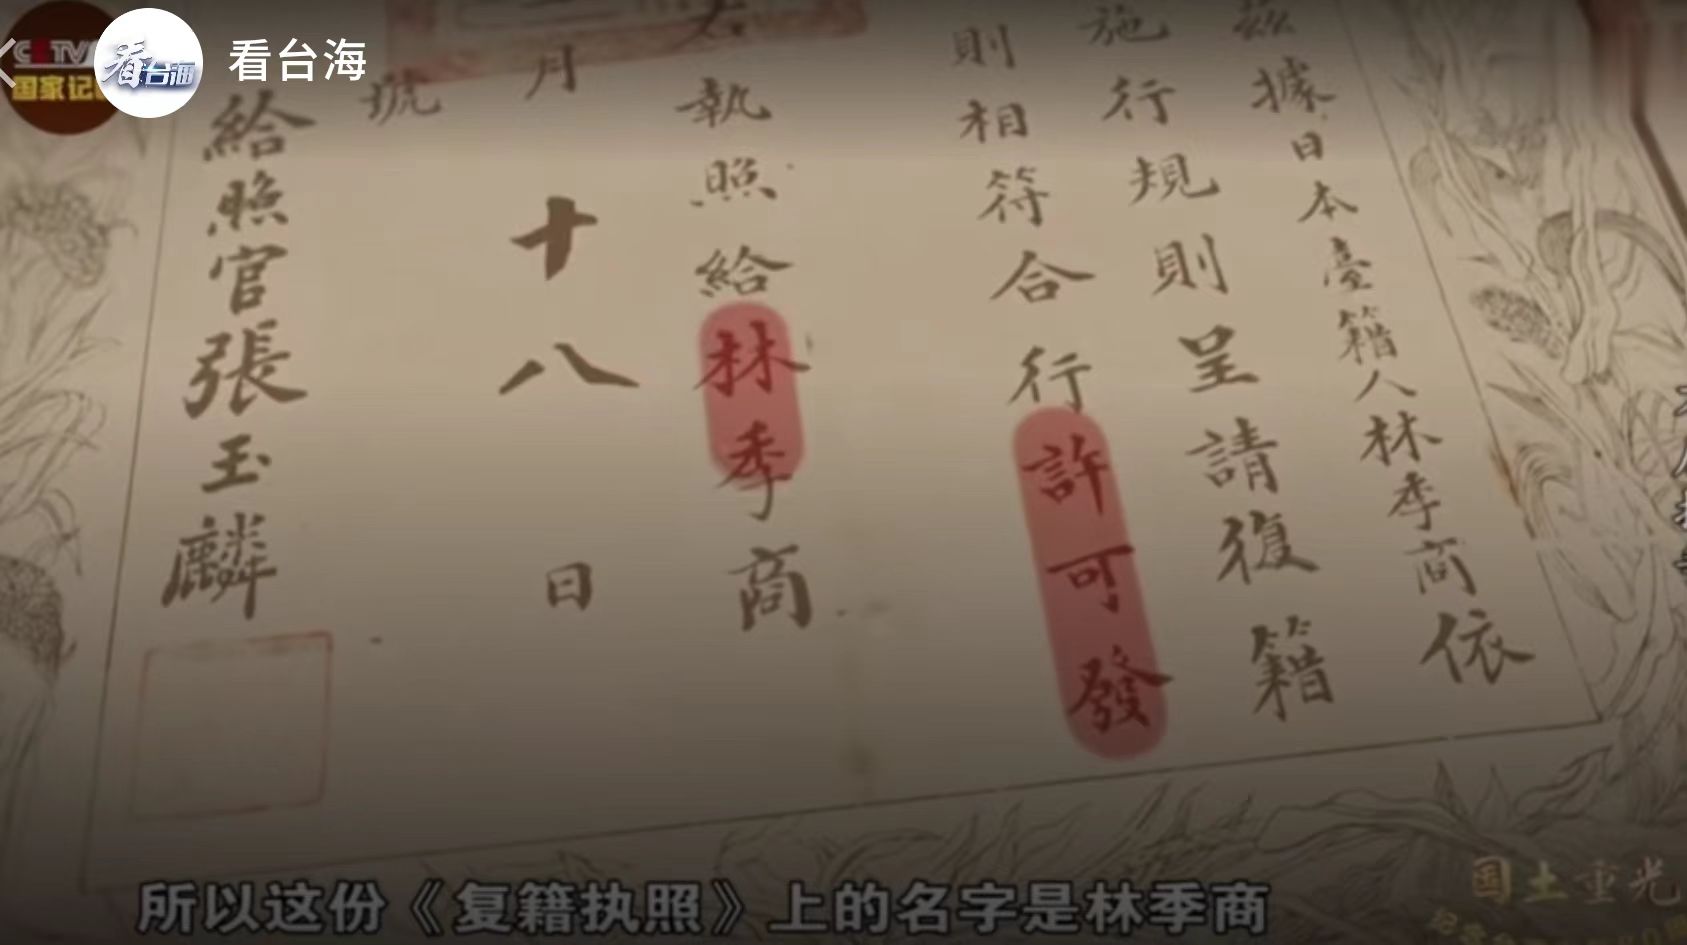 看台海
国家记
茲據日本臺籍人林季商依
施行規則呈請復籍
則相符合行許可發
右執照給林季商
月十八日
號
給照官張玉麟
所以这份《复籍执照》上的名字是林季商
国土重光